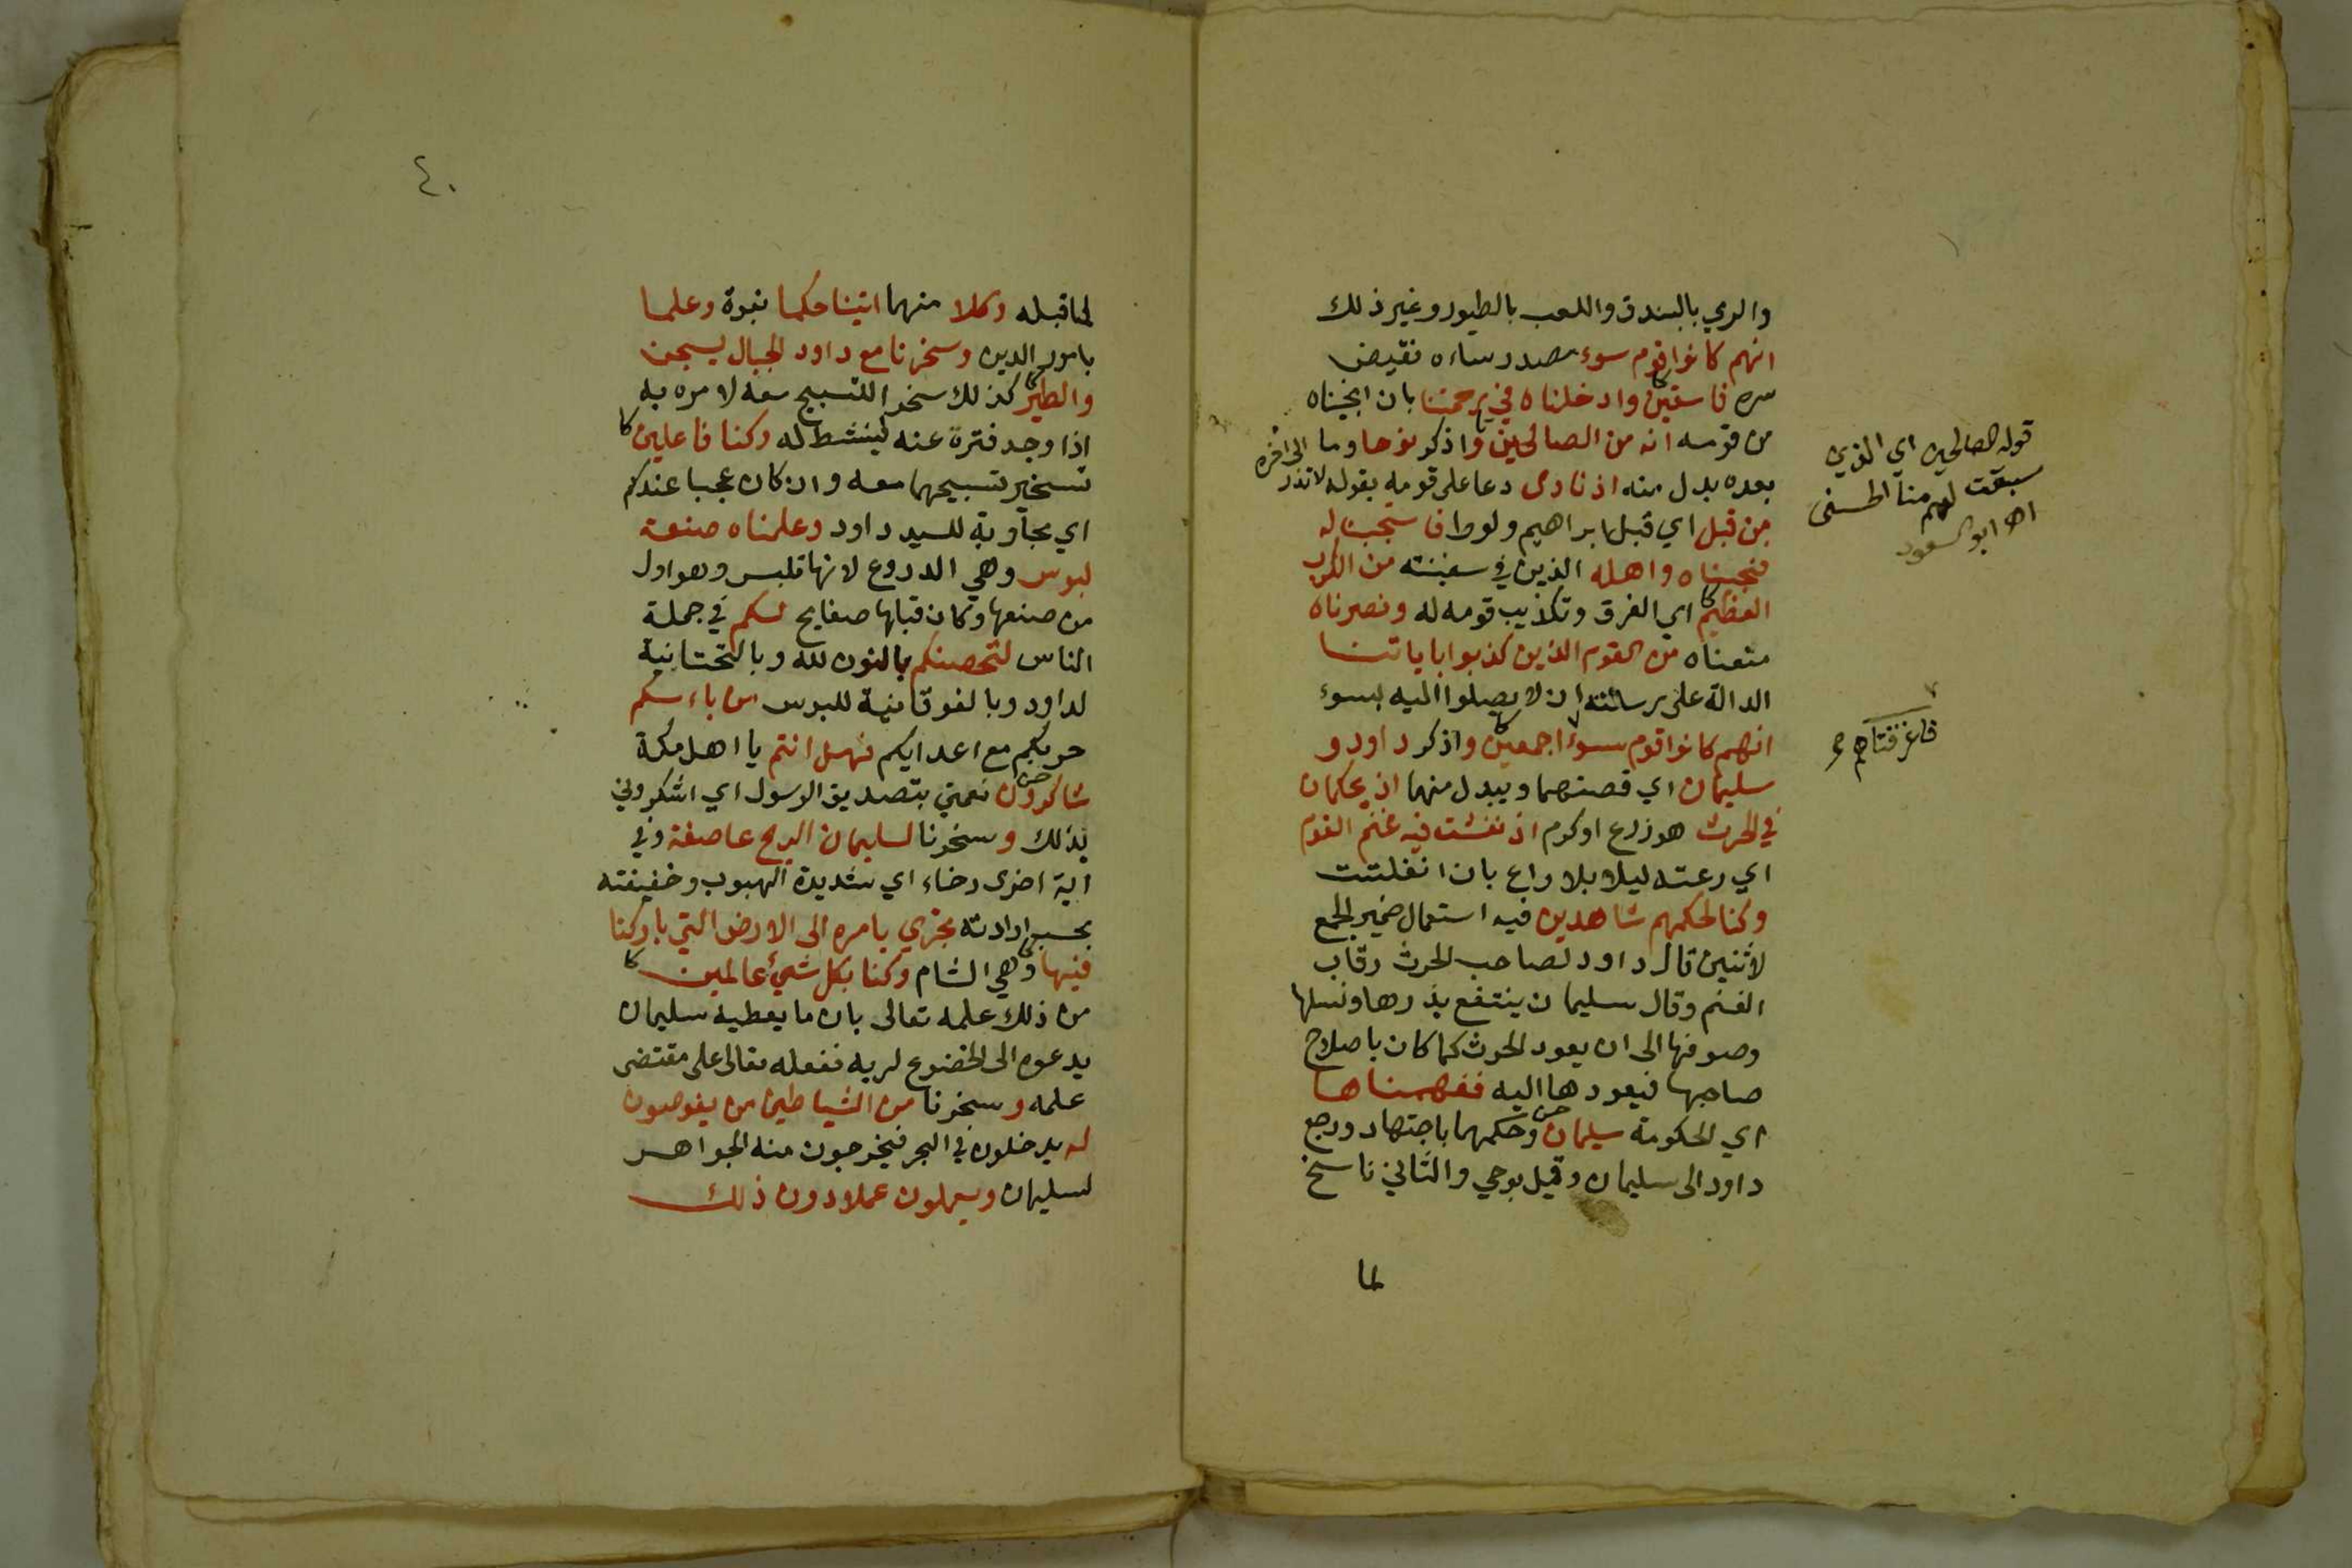 والرمي بالبندق واللعب بالطيور وغير ذلك
انهم كانوا قوم سوء مصدر ساءه نقيض
سره فاسقين وادخلناه في رحمتنا بان انجيناه
من قومه انه من الصالحين واذكر نوحا وما
بعده بدل منه اذ نادى دعا على قومه بقوله لا تذر
الى اخره
من قبل اي قبل ابراهيم ولوط فاستجبنا له
فنجيناه واهله الذين في سفينته من الكرب
العظيم اي الغرق وتكذيب قومه له ونصرناه
منعناه من القوم الذين كذبوا باياتنا
الدالة على رسالته ان لا يصلوا اليه بسوء
انهم كانوا قوم سوء اجمعين واذكر داود و
سليمان اي قصتهما ويبدل منهما اذ يحكمان
في الحرث هو زرع او كرم اذ نفشت فيه غنم القوم
اي رعته ليلا بلا راع بان انفلتت
وكنا لحكمهم شاهدين فيه استعمال ضمير الجمع
لاثنين قال داود لصاحب الحرث رقاب
الغنم وقال سليمان ينتفع بدرها ونسلها
وصوفها الى ان يعود الحرث كما كان باصلاح
صاحبها فيعودها اليه ففهمناها
اي الحكومة سليمان وحكمهما باجتهاد ورجع
داود الى سليمان وقيل بوحي والثاني ناسخ
لما
قوله الصالحين اي الذين
سبقت لهم منا الحسنى
اهـ ابو السعود
فاغرقناهم
٤٠
لما قبله وكلا منهما اتينا حكما نبوة وعلما
بامور الدين وسخرنا مع داود الجبال يسبحن
والطير كذلك سخرا للتسبيح معه لامره به
اذا وجد فترة عنه لينشط له وكنا فاعلين
تسخير تسبيحهما معه وان كان عجبا عندكم
اي مجاوبة للسيد داود وعلمناه صنعة
لبوس وهي الدروع لانها تلبس وهو اول
من صنعها وكان قبلها صفايح لكم في جملة
الناس لتحصنكم بالنون لله وبالتحتانية
لداود وبالفوقانية للبوس من باءسكم
حربكم مع اعدايكم فهل انتم يا اهل مكة
شاكرون نعمتي بتصديق الرسول اي اشكروني
بذلك وسخرنا لسليمان الريح عاصفة وفي
اية اخرى رخاء اي شديدة الهبوب وخفيفته
بحسب ارادته تجري بامره الى الارض التي باركنا
فيها وهي الشام وكنا بكل شيء عالمين
من ذلك علمه تعالى بان ما يعطيه سليمان
يدعوه الى الخضوع لربه ففعله تعالى على مقتضى
علمه وسخرنا من الشياطين من يغوصون
له يدخلون في البحر فيخرجون منه الجواهر
لسليمان ويعملون عملا دون ذلك